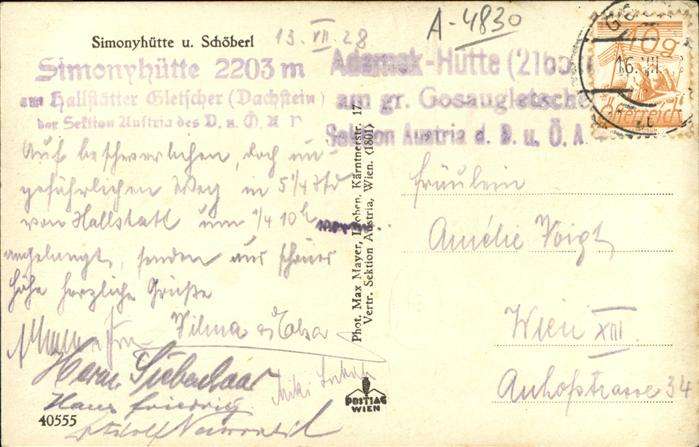 A-4830
Simonyhütte u. Schöberl
13. VII. 28
Simonyhütte 2203 m
am Hallstätter Gletscher (Dachstein)
der Sektion Austria des D. u. Ö. A. V.
Auf beschwerlichen, doch un-
gefährlichen Weg in 5 1/4 Std
von Hallstatt um 1/4 10h
angelangt, senden aus schöner
Höhe herzliche Grüße
Wilma
Herm. Siebenhaar
Hans Friedrich
Adolf
40555
Phot. Max Mayer, Kärntnerstr. 17
Vertr. Sektion Austria, Wien. (1801)
POSTIAG
WIEN
Adamek-Hütte
am gr. Gosaugletscher
Sektion Austria d. D. u. Ö. A.
10g
16. VII.
Österreich
Fräulein
Amélie Voigt
Wien XIII
Auhofstrasse 34